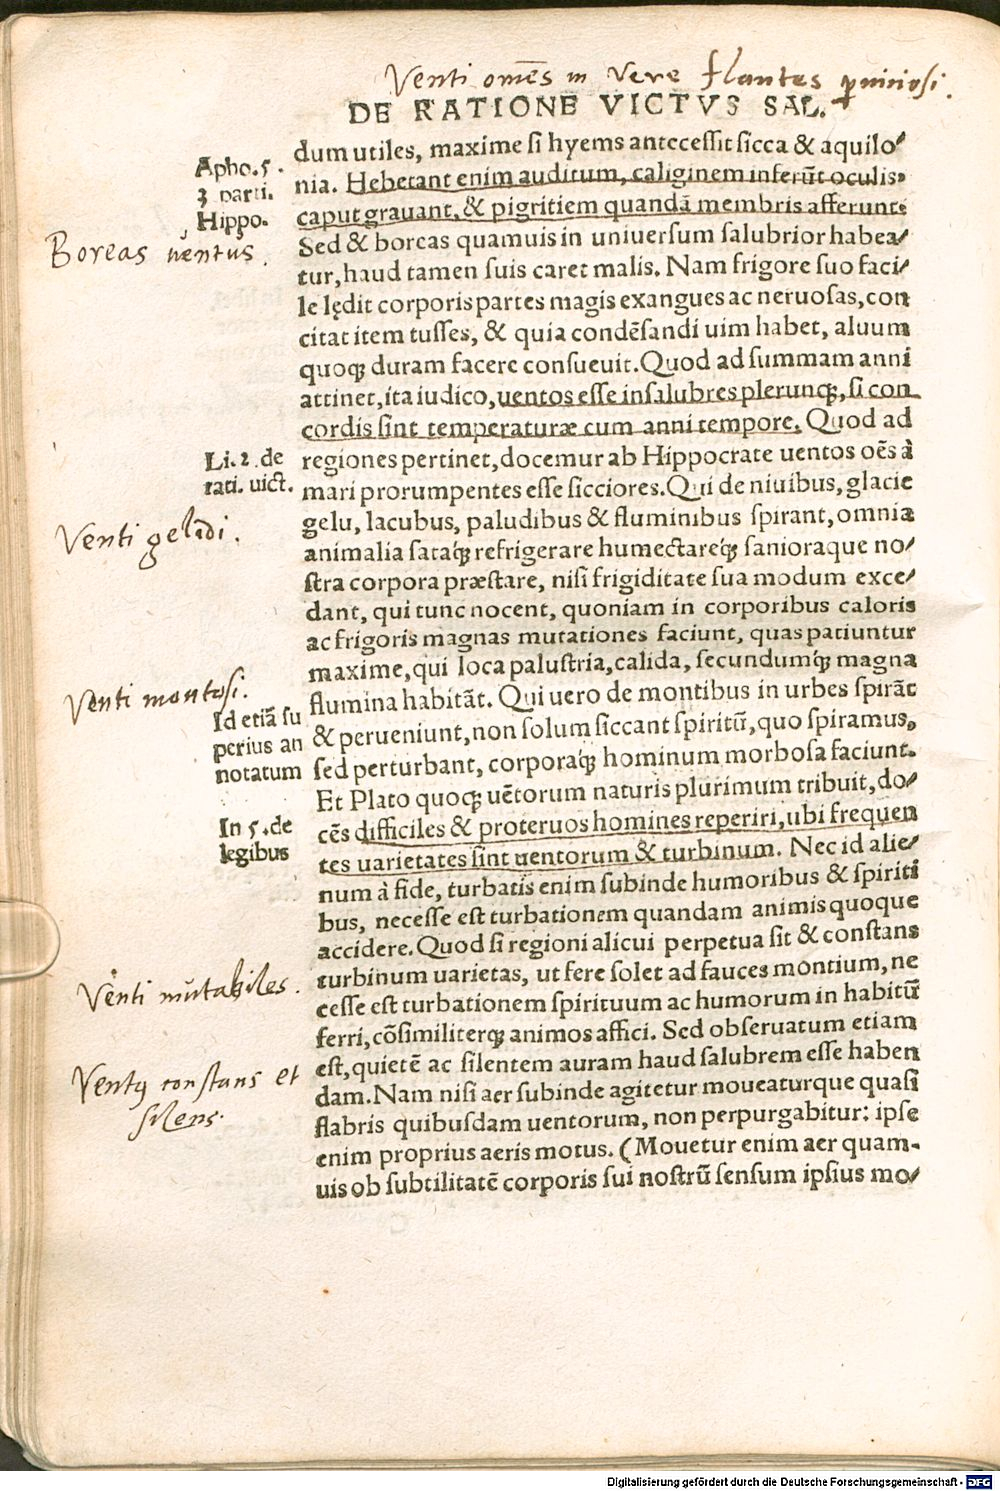 Venti om̅es in Vere flantes ꝑniciosi.
DE RATIONE VICTVS SAL.
dum utiles, maxime si hyems antecessit sicca & aquilo⸗
Apho. 5.
3 parti.
Hippo.
nia. Hebetant enim auditum, caliginem inferūt oculis,
caput grauant, & pigritiem quandā membris afferunt:
Boreas ventus.
Sed & boreas quamuis in uniuersum salubrior habea⸗
tur, haud tamen suis caret malis. Nam frigore suo faci⸗
le lędit corporis partes magis exangues ac neruosas, con
citat item tusses, & quia condēsandi uim habet, aluum
quoqꝫ duram facere consueuit. Quod ad summam anni
attinet, ita iudico, uentos esse insalubres plerunqꝫ, si con
cordis sint temperaturæ cum anni tempore. Quod ad
Li. 2. de
rati. uict.
regiones pertinet, docemur ab Hippocrate uentos oēs à
mari prorumpentes esse sicciores. Qui de niuibus, glacie
Venti gelidi.
gelu, lacubus, paludibus & fluminibus spirant, omnia
animalia sataqꝫ refrigerare humectareqꝫ sanioraque no⸗
stra corpora præstare, nisi frigiditate sua modum exce⸗
dant, qui tunc nocent, quoniam in corporibus caloris
ac frigoris magnas mutationes faciunt, quas patiuntur
maxime, qui loca palustria, calida, secundumqꝫ magna
Venti montosi.
flumina habitāt. Qui uero de montibus in urbes spirāt
Id etiā su
perius an
notatum
& perueniunt, non solum siccant spiritū, quo spiramus,
sed perturbant, corporaqꝫ hominum morbosa faciunt.
Et Plato quoqꝫ uētorum naturis plurimum tribuit, do⸗
In 5. de
legibus
cēs difficiles & proteruos homines reperiri, ubi frequen
tes uarietates sint uentorum & turbinum. Nec id alie⸗
num à fide, turbatis enim subinde humoribus & spiriti
bus, necesse est turbationem quandam animis quoque
accidere. Quod si regioni alicui perpetua sit & constans
Venti mutabiles.
turbinum uarietas, ut fere solet ad fauces montium, ne
cesse est turbationem spirituum ac humorum in habitū
ferri, cōsimiliterqꝫ animos affici. Sed obseruatum etiam
Ventꝯ constans et
silens.
est, quietē ac silentem auram haud salubrem esse haben
dam. Nam nisi aer subinde agitetur moueaturque quasi
flabris quibusdam uentorum, non perpurgabitur: ipse
enim proprius aeris motus. (Mouetur enim aer quam-
uis ob subtilitatē corporis sui nostrū sensum ipsius mo⸗
Digitalisierung gefördert durch die Deutsche Forschungsgemeinschaft - DFG